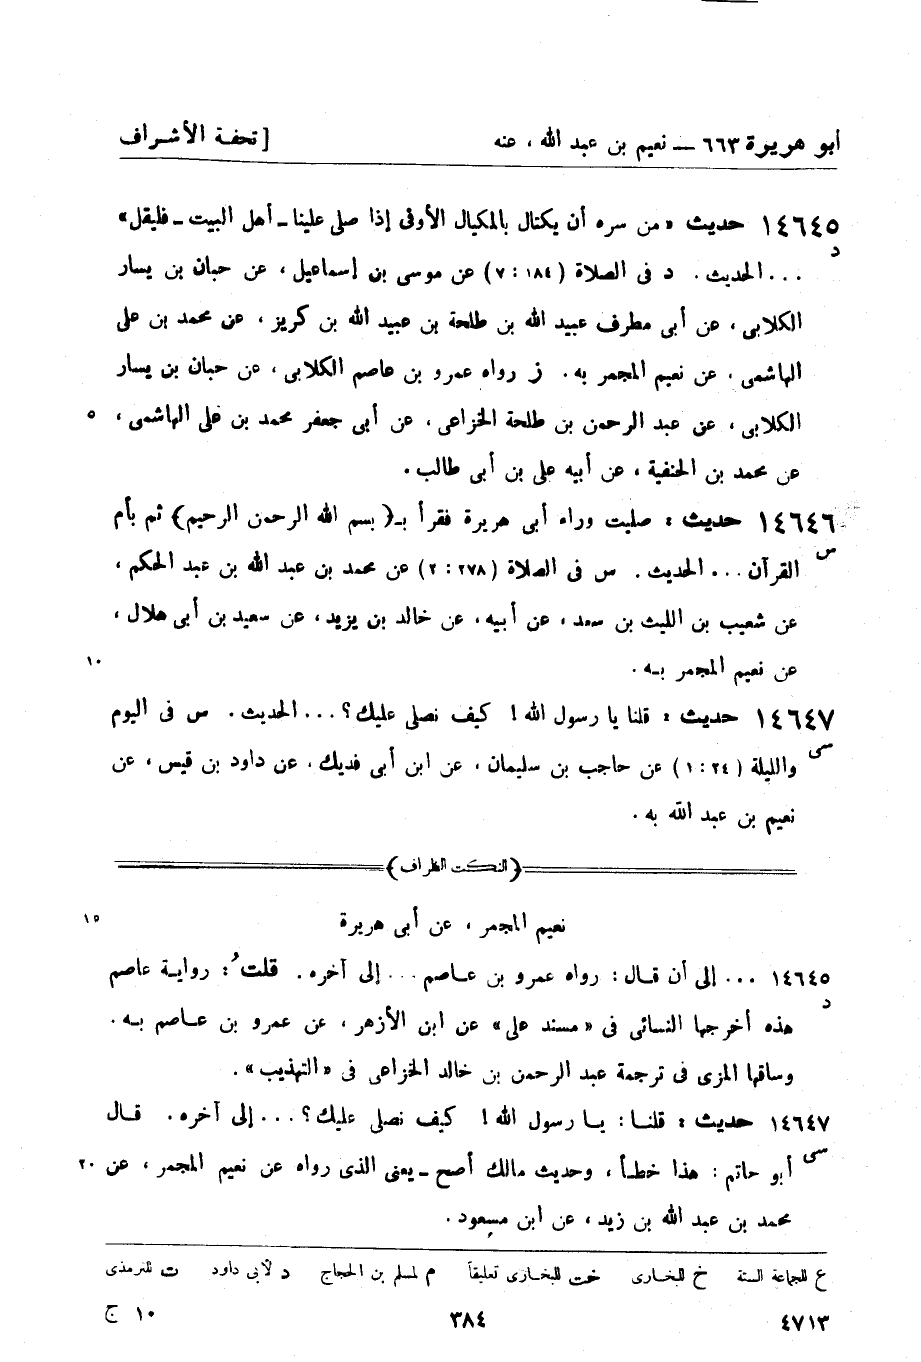 أبو هريرة ٦٦٣ — نعيم بن عبد الله ، عنه [ تحفة الأشراف
١٤٦٤٥ حديث « من سره أن يكتال بالمكيال الأوفى إذا صلى علينا ـ أهل البيت ـ فليقل »
د ... الحديث . د فى الصلاة ( ١٨٤ : ٧ ) عن موسى بن إسماعيل ، عن حبان بن يسار
الكلابى ، عن أبى مطرف عبيد الله بن طلحة بن عبيد الله بن كريز ، عن محمد بن على
الهاشمى ، عن نعيم المجمر به . ز رواه عمرو بن عاصم الكلابى ، عن حبان بن يسار
الكلابى ، عن عبد الرحمن بن طلحة الخزاعى ، عن أبى جعفر محمد بن على الهاشمى ، ٥
عن محمد بن الحنفية ، عن أبيه على بن أبى طالب .
١٤٦٤٦ حديث : صليت وراء أبى هريرة فقرأ بـ﴿ بسم الله الرحمن الرحيم ﴾ ثم بأم
س القرآن ... الحديث . س فى الصلاة ( ٢٧٨ : ٢ ) عن محمد بن عبد الله بن عبد الحكم ،
عن شعيب بن الليث بن سعد ، عن أبيه ، عن خالد بن يزيد ، عن سعيد بن أبى هلال ،
عن نعيم المجمر بـه . ١٠
١٤٦٤٧ حديث : قلنا يا رسول الله ! كيف نصلى عليك ؟ ... الحديث . س فى اليوم
سى والليلة ( ٢٤ : ١ ) عن حاجب بن سليمان ، عن ابن أبى فديك ، عن داود بن قيس ، عن
نعيم بن عبد الله به .
( النكت الظراف )
نعيم المجمر ، عن أبى هريرة ١٥
١٤٦٤٥ ... إلى أن قـال : رواه عمرو بن عـاصم ... إلى آخره . قلت : روايـة عاصم
د هذه أخرجها النسائى فى « مسند على » عن ابن الأزهر ، عن عمرو بن عـاصم بـه .
وساقها المزى فى ترجمة عبد الرحمن بن خالد الخزاعى فى « التهذيب » .
١٤٦٤٧ حديث : قلنـا : يـا رسول الله ! كيف نصلى عليك ؟ ... إلى آخره . قـال
سى أبو حاتم : هذا خطـأ ، وحديث مالك أصح ـ يعنى الذى رواه عن نعيم المجمر ، عن ٢٠
محمد بن عبد الله بن زيد ، عن ابن مسعود .
ع للجماعة الستة خ للبخـارى خت للبخارى تعليقاً م لمسلم بن الحجاج د لأبى داود ت للترمذى
٤٧١٣ ٣٨٤ ١٠ ج